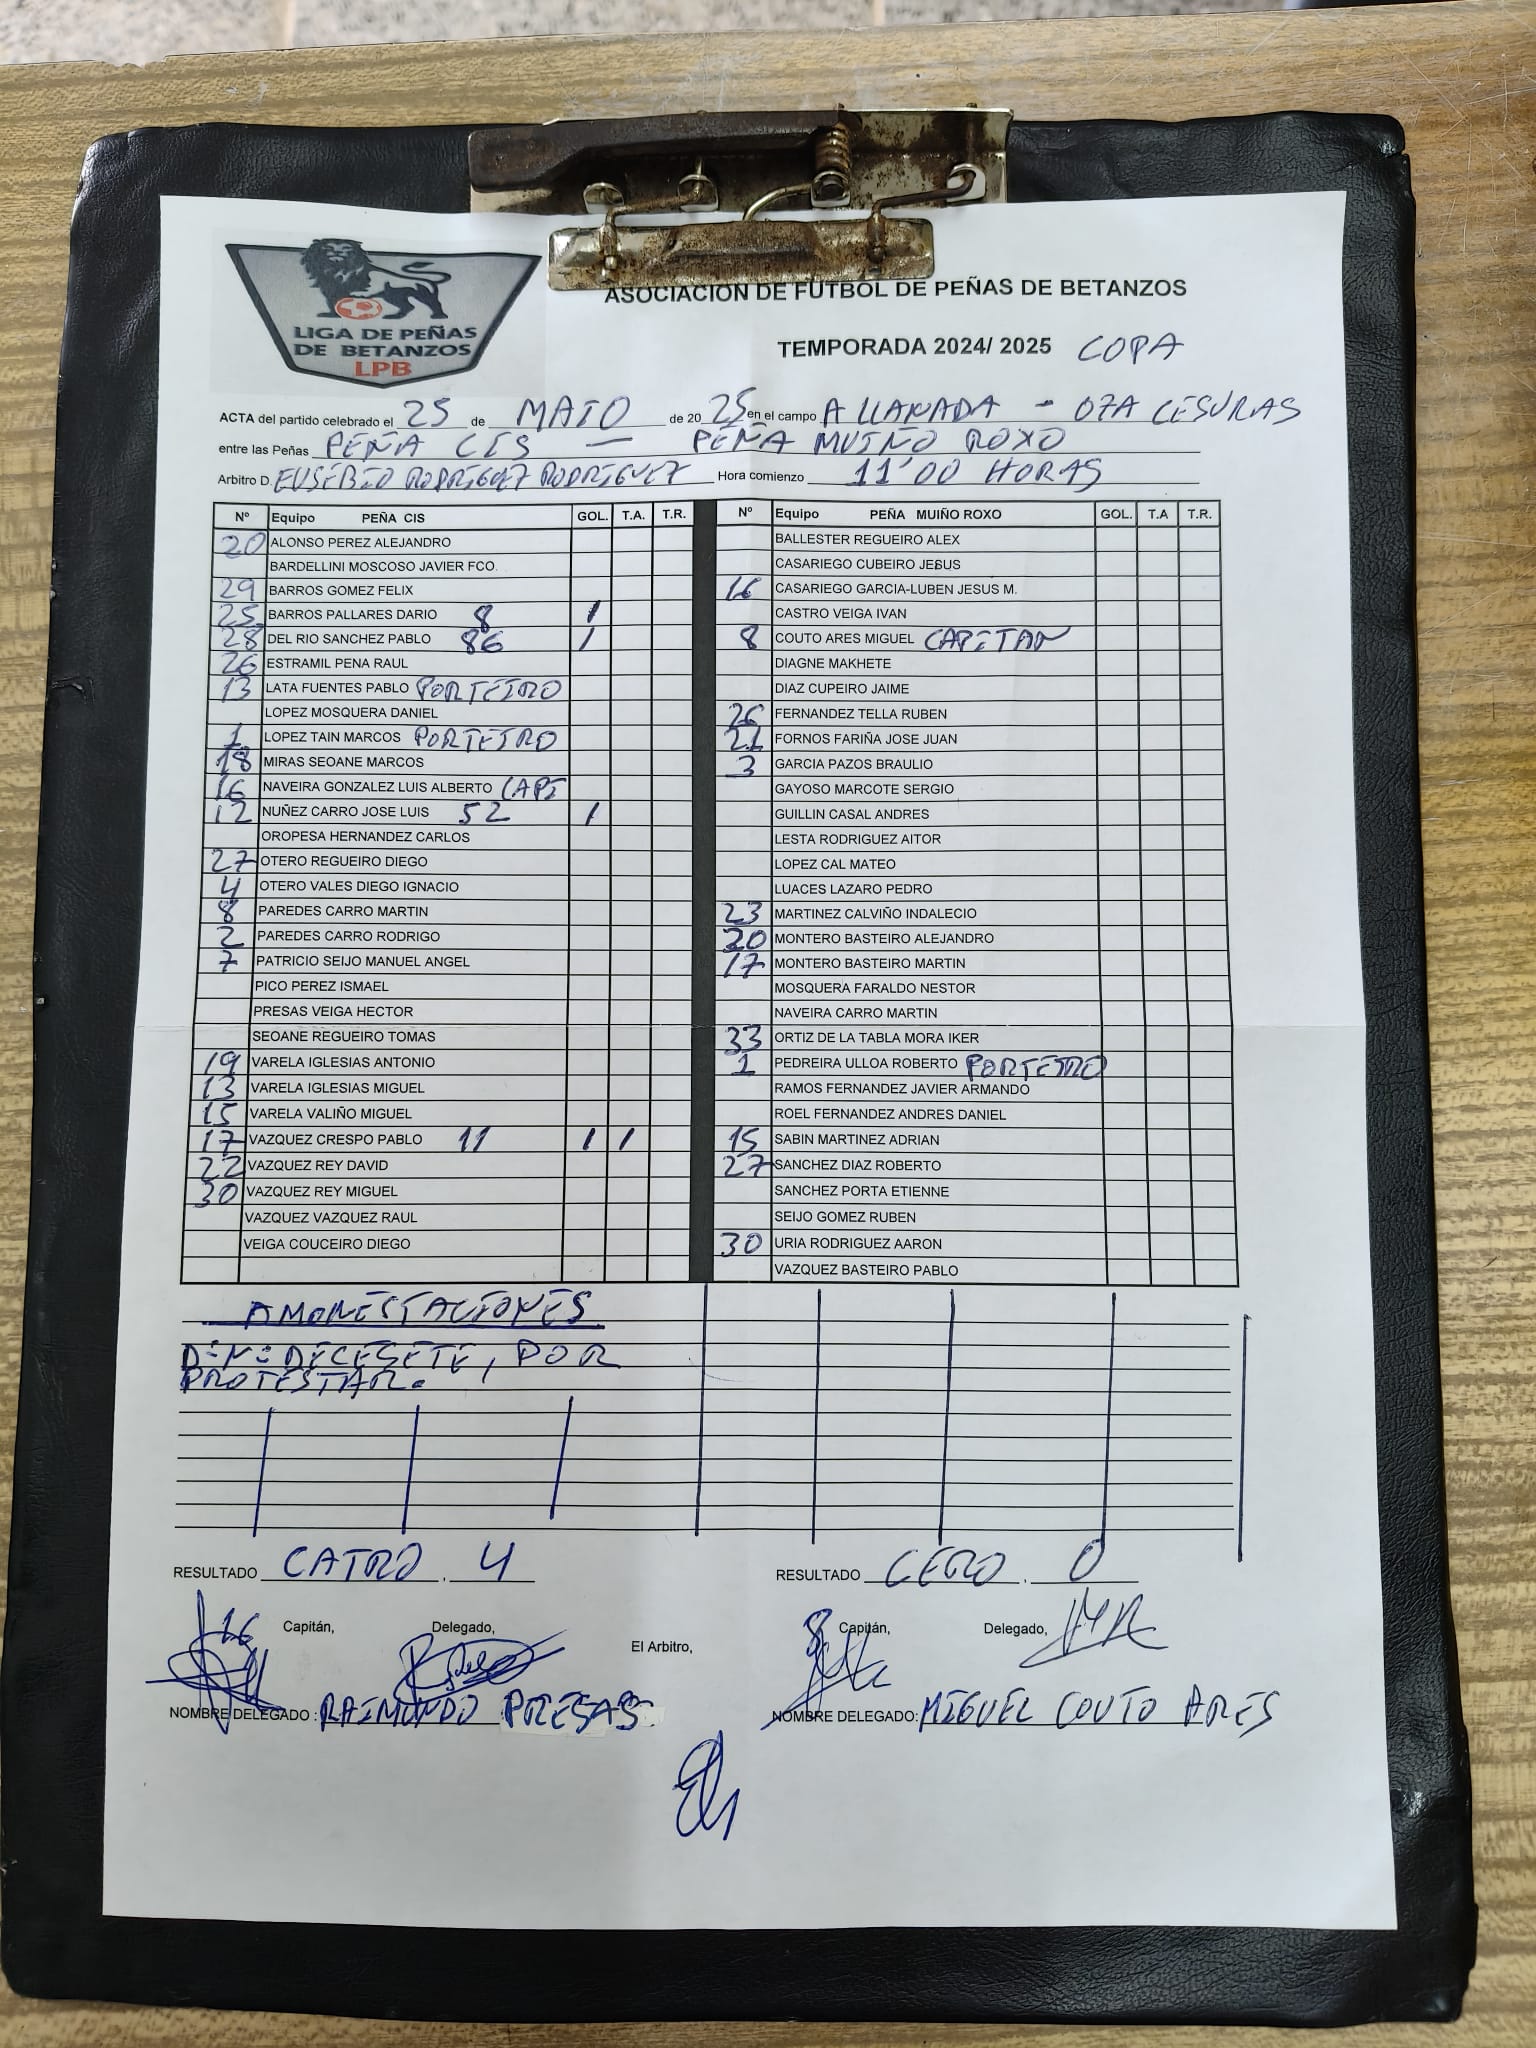 LIGA DE PEÑAS
DE BETANZOS
LPB
ASOCIACION DE FUTBOL DE PEÑAS DE BETANZOS
TEMPORADA 2024/ 2025 COPA
ACTA del partido celebrado el 25 de MAIO de 2025 en el campo A LLANADA - OZA CESURAS
entre las Peñas PEÑA CIS — PEÑA MUIÑO ROXO
Arbitro D. EUSEBIO RODRIGUEZ RODRIGUEZ Hora comienzo 11'00 HORAS
Nº Equipo PEÑA CIS GOL. T.A. T.R.
20 ALONSO PEREZ ALEJANDRO
BARDELLINI MOSCOSO JAVIER FCO.
29 BARROS GOMEZ FELIX
25 BARROS PALLARES DARIO 8 1
28 DEL RIO SANCHEZ PABLO 86 1
26 ESTRAMIL PENA RAUL
13 LATA FUENTES PABLO PORTEIRO
LOPEZ MOSQUERA DANIEL
1 LOPEZ TAIN MARCOS PORTEIRO
18 MIRAS SEOANE MARCOS
16 NAVEIRA GONZALEZ LUIS ALBERTO CAPI
12 NUÑEZ CARRO JOSE LUIS 52 1
OROPESA HERNANDEZ CARLOS
27 OTERO REGUEIRO DIEGO
4 OTERO VALES DIEGO IGNACIO
8 PAREDES CARRO MARTIN
2 PAREDES CARRO RODRIGO
7 PATRICIO SEIJO MANUEL ANGEL
PICO PEREZ ISMAEL
PRESAS VEIGA HECTOR
SEOANE REGUEIRO TOMAS
19 VARELA IGLESIAS ANTONIO
13 VARELA IGLESIAS MIGUEL
15 VARELA VALIÑO MIGUEL
17 VAZQUEZ CRESPO PABLO 11 1 1
22 VAZQUEZ REY DAVID
30 VAZQUEZ REY MIGUEL
VAZQUEZ VAZQUEZ RAUL
VEIGA COUCEIRO DIEGO
Nº Equipo PEÑA MUIÑO ROXO GOL. T.A T.R.
BALLESTER REGUEIRO ALEX
CASARIEGO CUBEIRO JESUS
16 CASARIEGO GARCIA-LUBEN JESUS M.
CASTRO VEIGA IVAN
8 COUTO ARES MIGUEL CAPITAN
DIAGNE MAKHETE
DIAZ CUPEIRO JAIME
26 FERNANDEZ TELLA RUBEN
21 FORNOS FARIÑA JOSE JUAN
3 GARCIA PAZOS BRAULIO
GAYOSO MARCOTE SERGIO
GUILLIN CASAL ANDRES
LESTA RODRIGUEZ AITOR
LOPEZ CAL MATEO
LUACES LAZARO PEDRO
23 MARTINEZ CALVIÑO INDALECIO
20 MONTERO BASTEIRO ALEJANDRO
17 MONTERO BASTEIRO MARTIN
MOSQUERA FARALDO NESTOR
NAVEIRA CARRO MARTIN
33 ORTIZ DE LA TABLA MORA IKER
1 PEDREIRA ULLOA ROBERTO PORTEIRO
RAMOS FERNANDEZ JAVIER ARMANDO
ROEL FERNANDEZ ANDRES DANIEL
15 SABIN MARTINEZ ADRIAN
27 SANCHEZ DIAZ ROBERTO
SANCHEZ PORTA ETIENNE
SEIJO GOMEZ RUBEN
30 URIA RODRIGUEZ AARON
VAZQUEZ BASTEIRO PABLO
AMONESTACIONES
D=N= DECESETE, POR
PROTESTAR.
RESULTADO CATRO . 4 RESULTADO CERO . 0
16 Capitán, Delegado, El Arbitro, 8 Capitán, Delegado,
NOMBRE DELEGADO : RAIMUNDO PRESAS NOMBRE DELEGADO: MIGUEL COUTO ARES